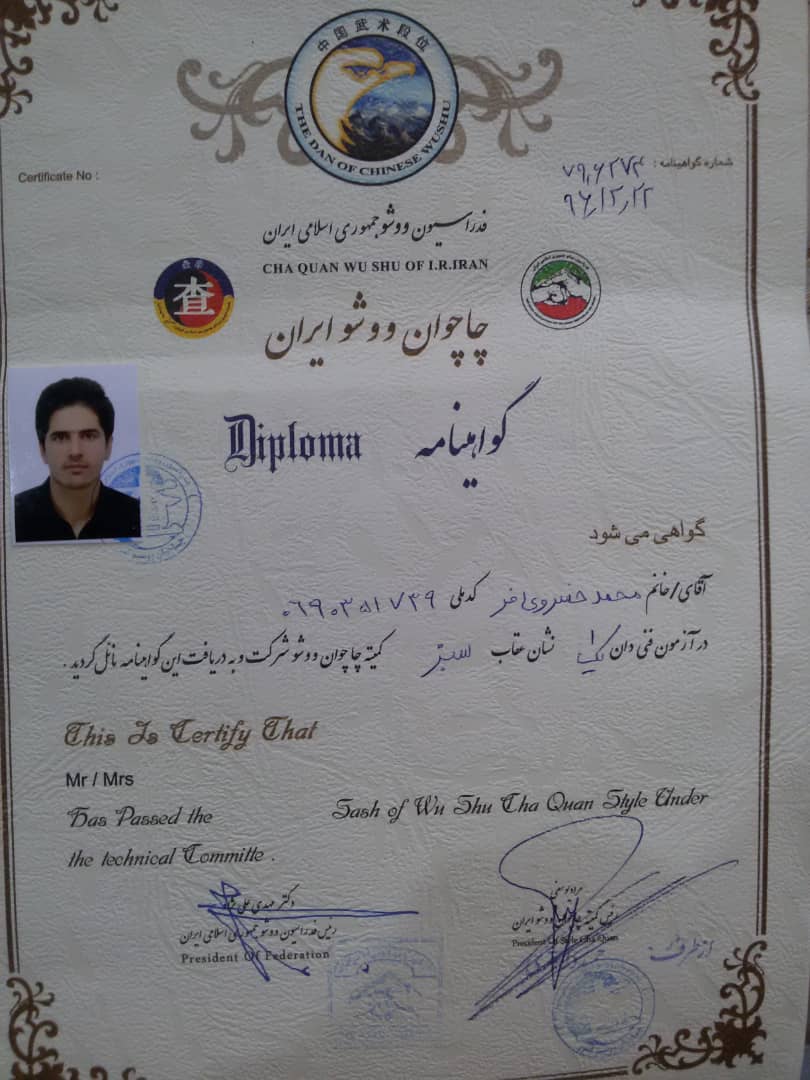 中国武术段位
THE DAN OF CHINESE WUSHU
Certificate No :
شماره گواهینامه : ۷۹٫۶۲۷۴
۹۶/۲/۲۲
فدراسیون ووشو جمهوری اسلامی ایران
CHA QUAN WU SHU OF I.R.IRAN
查
چاچوان ووشو ایران
Diploma گواهینامه
گواهی می شود
آقای/خانم محمد خسروی کدملی ۰۶۹۰۳۵۱۷۳۹
در آزمون فنی دان یک ۱ نشان عقاب سبز کمیته چاچوان ووشو شرکت و به دریافت این گواهینامه نائل گردید .
This Is Certify That
Mr / Mrs
Has Passed the Sash of Wu Shu Cha Quan Style Under
the technical Committe .
دکتر مهدی علی نژاد
رییس فدراسیون ووشو جمهوری اسلامی ایران
President Of Federation
مراد یوسفی
رییس کمیته چاچوان ووشو ایران
President Of Style Cha Quan
از طرف